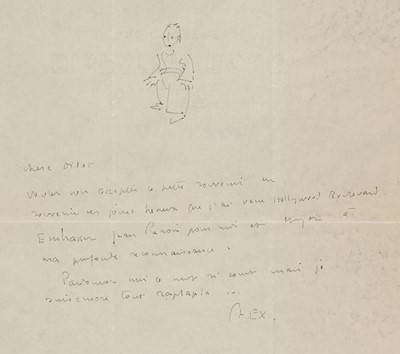 Chère Dido.
Voulez vous accepter ce petit souvenir en
souvenir des jours heureux que j'ai vécu Hollywood Boulevard
Embrassez Jean Renoir pour moi et
ma profonde reconnaissance.
Pardonnez moi ce mot si court mais je
suis encore tout raplapla ...
ALEX.